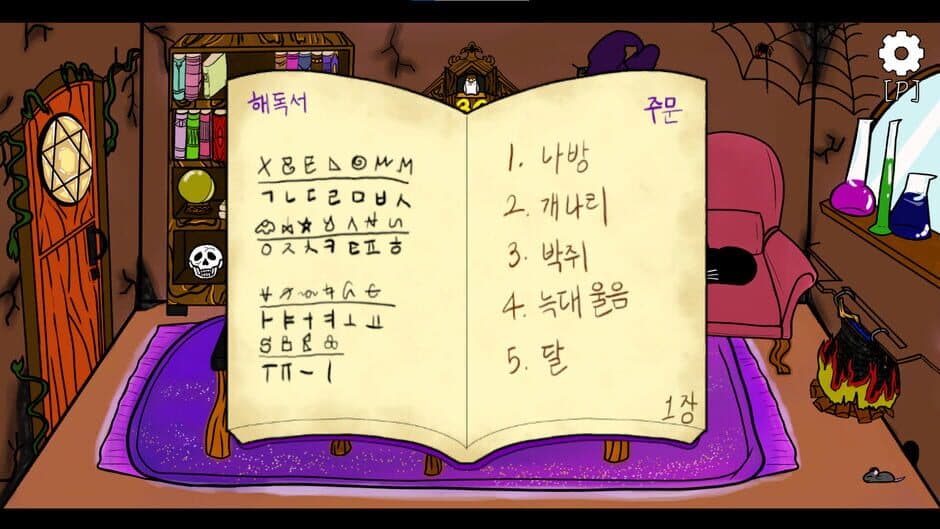 해독서
ㄱㄴㄷㄹㅁㅂㅅ
ㅇㅈㅊㅋㅌㅍㅎ
ㅏㅑㅓㅕㅗㅛ
ㅜㅠㅡㅣ
주문
1. 나방
2. 개나리
3. 박쥐
4. 늑대 울음
5. 달
1장
[P]